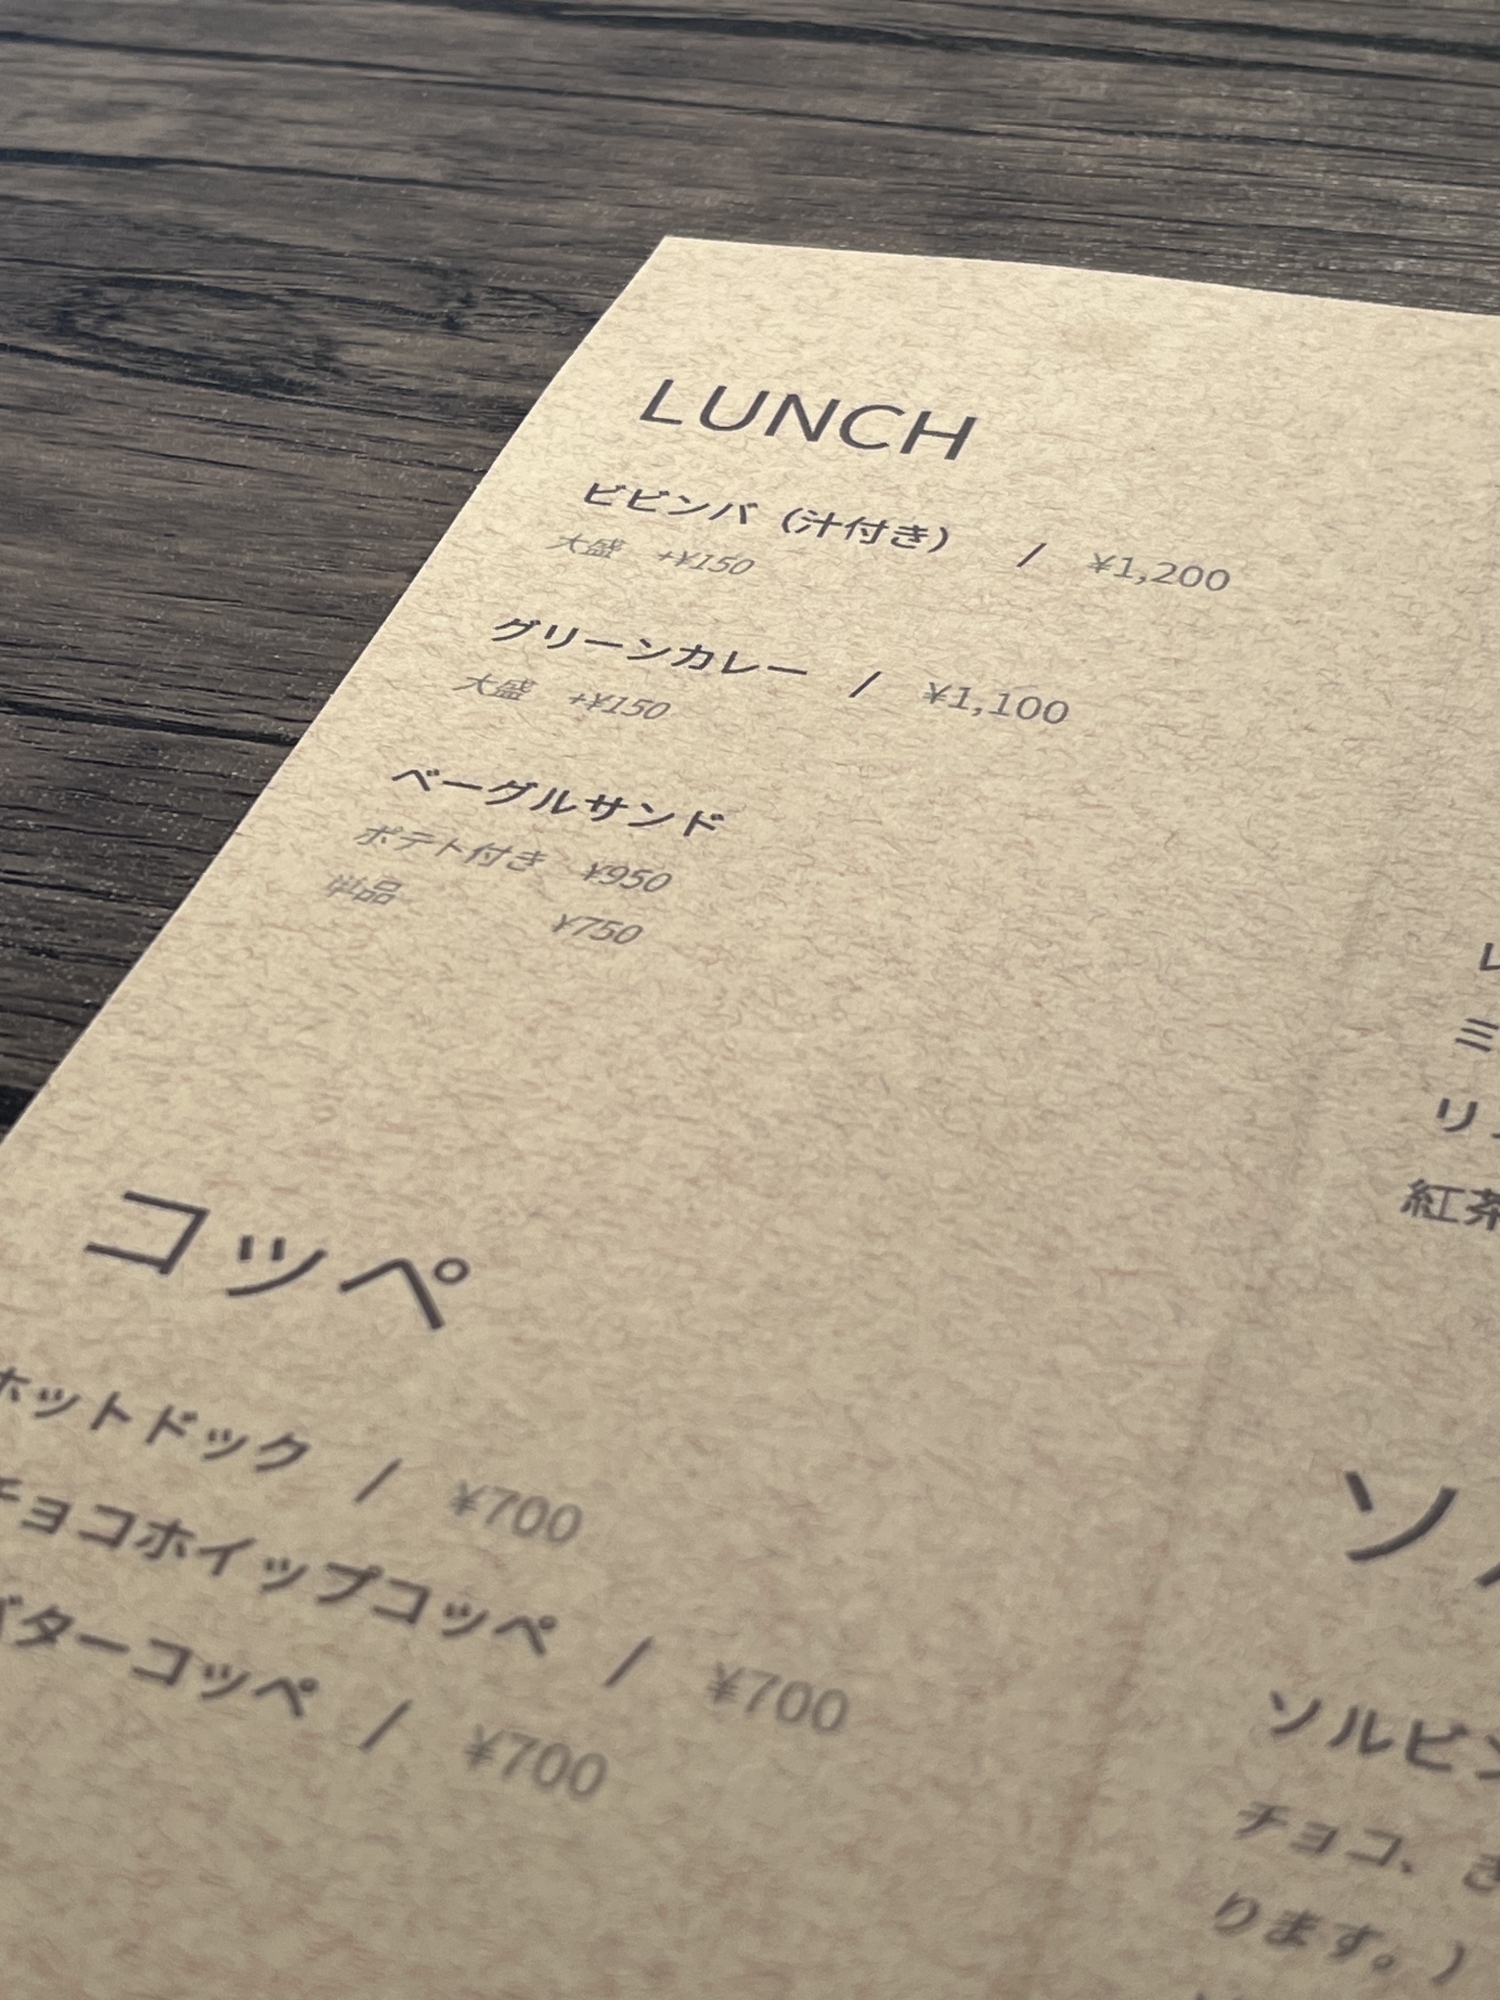 LUNCH
ビビンバ（汁付き） / ¥1,200
大盛 +¥150
グリーンカレー / ¥1,100
大盛 +¥150
ベーグルサンド
ポテト付き ¥950
単品 ¥750
コッペ
ホットドック / ¥700
チョコホイップコッペ / ¥700
バターコッペ / ¥700
レ
ミ
リ
紅茶
ソ
ソルビン
チョコ、き
ります。）